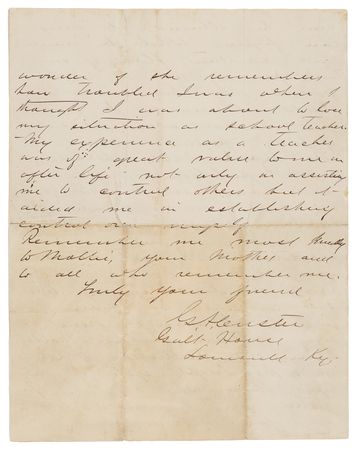 wonder if she remembers
how troubled I was when I
thought I was about to lose
my situation as school teacher.
My experience as a teacher
was of great value to me in
after life not only in assisting
me to control others but it
aided me in establishing
control over myself
Remember me most kindly
to Mollie, your Mother and
to all who remember me.
Truly your friend
G A Custer
Galt House
Louisville Ky.